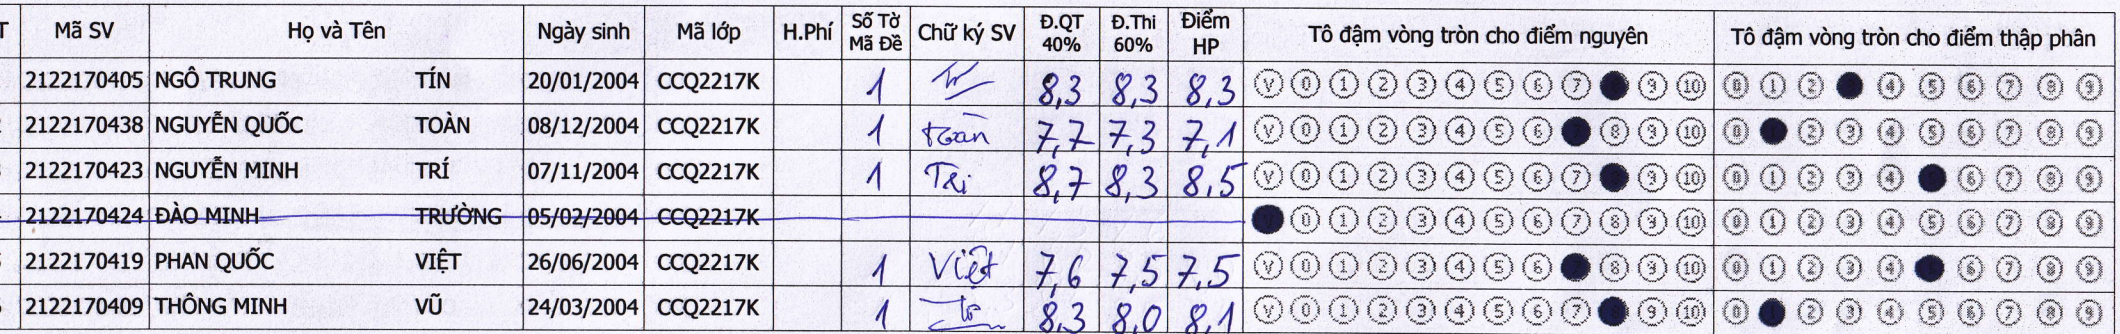 T Mã SV Họ và Tên Ngày sinh Mã lớp H.Phí Số Tờ Mã Đề Chữ ký SV Đ.QT 40% Đ.Thi 60% Điểm HP Tô đậm vòng tròn cho điểm nguyên Tô đậm vòng tròn cho điểm thập phân
2122170405 NGÔ TRUNG TÍN 20/01/2004 CCQ2217K 1 8,3 8,3 8,3 V 0 1 2 3 4 5 6 7 9 10 0 1 2 4 5 6 7 8 9
2122170438 NGUYỄN QUỐC TOÀN 08/12/2004 CCQ2217K 1 toàn 7,7 7,3 7,1 V 0 1 2 3 4 5 6 8 9 10 0 2 3 4 5 6 7 8 9
2122170423 NGUYỄN MINH TRÍ 07/11/2004 CCQ2217K 1 Tri 8,7 8,3 8,5 V 0 1 2 3 4 5 6 7 9 10 0 1 2 3 4 6 7 8 9
2122170424 ĐÀO MINH TRƯỜNG 05/02/2004 CCQ2217K 0 1 2 3 4 5 6 7 8 9 10 0 1 2 3 4 5 6 7 8 9
2122170419 PHAN QUỐC VIỆT 26/06/2004 CCQ2217K 1 Việt 7,6 7,5 7,5 V 0 1 2 3 4 5 6 8 9 10 0 1 2 3 4 6 7 8 9
2122170409 THÔNG MINH VŨ 24/03/2004 CCQ2217K 1 8,3 8,0 8,1 V 0 1 2 3 4 5 6 7 9 10 0 2 3 4 5 6 7 8 9